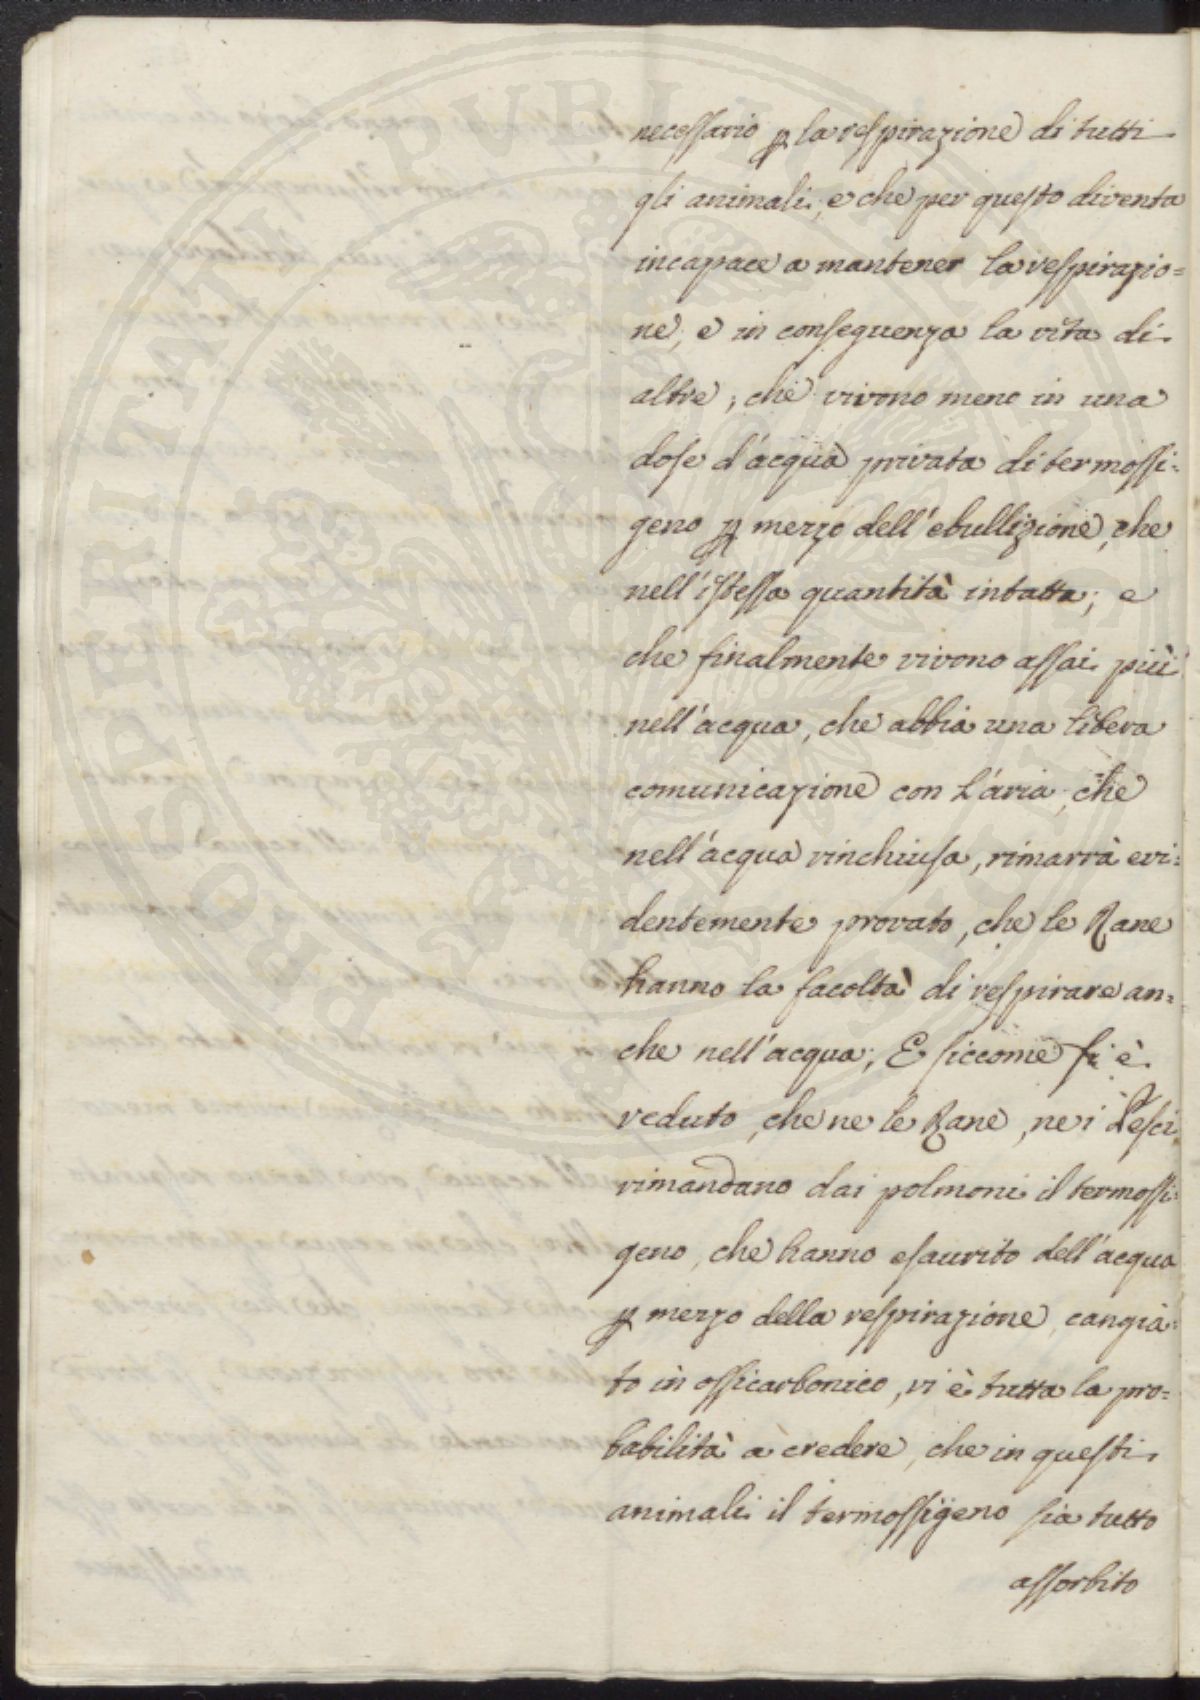 necessario p la respirazione di tutti
gli animali, e che per questo diventa
incapace a mantener la respirazio=
ne, e in conseguenza la vita di
altre, che vivono meno in una
dose d'acqua privata di termossi=
geno p mezzo dell'ebullizione, che
nell'istessa quantità intatta; e
che finalmente vivono assai più
nell'acqua, che abbia una libera
comunicazione con l'aria, che
nell'acqua rinchiusa, rimarrà evi=
dentemente provato, che le Rane
hanno la facoltà di respirare an=
che nell'acqua; E siccome si è
veduto, che ne le Rane, ne i Pesci
rimandano dai polmoni il termossi=
geno, che hanno esaurito dell'acqua
p mezzo della respirazione, cangia=
to in ossicarbonico, vi è tutta la pro=
babilità à credere, che in questi
animali il termossigeno sia tutto
assorbito
PROSPERITATI PVBLICAE